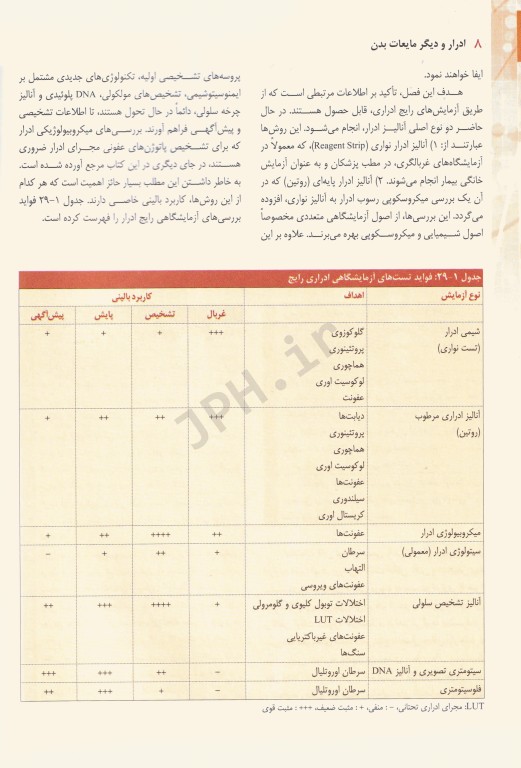 ۸ ادرار و دیگر مایعات بدن
ایفا خواهند نمود.
هــدف این فصل، تأکید بر اطلاعات مرتبطی اســت که از
طریق آزمایش‌های رایج ادراری، قابل حصول هســتند. در حال
حاضــر دو نوع اصلی آنالیــز ادرار، انجام می‌شــود. این روش‌ها
عبارتنــد از: ۱) آنالیز ادرار نواری (Reagent Strip)، که معمولاً در
آزمایشگاه‌های غربالگری، در مطب پزشکان و به عنوان آزمایش
خانگی بیمار انجام می‌شوند. ۲) آنالیز ادرار پایه‌ای (روتین) که در
آن یک بررسی میکروسکوپی رسوب ادرار به آنالیز نواری، افزوده
می‌گردد. این بررسی‌ها، از اصول آزمایشگاهی متعددی مخصوصاً
اصول شــیمیایی و میکروســکوپی بهره می‌برنــد. علاوه بر این
پروسه‌های تشــخیصی اولیه، تکنولوژی‌های جدیدی مشتمل بر
ایمنوسیتوشیمی، تشخیص‌های مولکولی، DNA پلوئیدی و آنالیز
چرخه سلولی، دائماً در حال تحول هستند، تا اطلاعات تشخیصی
و پیش‌آگهــی فراهم آورند. بررســی‌های میکروبیولوژیکی ادرار
که برای تشــخیص پاتوژن‌های عفونی مجــرای ادرار ضروری
هســتند، در جای دیگری در این کتاب مرجع آورده شــده است.
به خاطر داشــتن این مطلب بسیار حائز اهمیت است که هر کدام
از این روش‌ها، کاربرد بالینی خاصــی دارند. جدول ۱-۲۹ فواید
بررسی‌های آزمایشگاهی رایج ادرار را فهرست کرده است.
جدول ۱-۲۹: فواید تست‌های آزمایشگاهی ادراری رایج
نوع آزمایش اهداف کاربرد بالینی
غربال تشخیص پایش پیش‌آگهی
شیمی ادرار گلوکوزوی +++ + + +
(تست نواری) پروتئینوری
هماچوری
لوکوسیت اوری
عفونت
آنالیز ادراری مرطوب دیابت‌ها +++ ++ ++ +
(روتین) پروتئینوری
هماچوری
لوکوسیت اوری
عفونت‌ها
سیلندوری
کریستال اوری
میکروبیولوژی ادرار عفونت‌ها ++ ++++ ++ +
سیتولوژی ادرار (معمولی) سرطان + ++ + –
التهاب
عفونت‌های ویروسی
آنالیز تشخیص سلولی اختلالات توبول کلیوی و گلومرولی + ++++ +++ ++
اختلالات LUT
عفونت‌های غیرباکتریایی
سنگ‌ها
سیتومتری تصویری و آنالیز DNA سرطان اوروتلیال – ++ +++ +++
فلوسیتومتری سرطان اوروتلیال – + +++ ++
LUT: مجرای ادراری تحتانی، – : منفی، + : مثبت ضعیف، +++ : مثبت قوی
JPH.ir